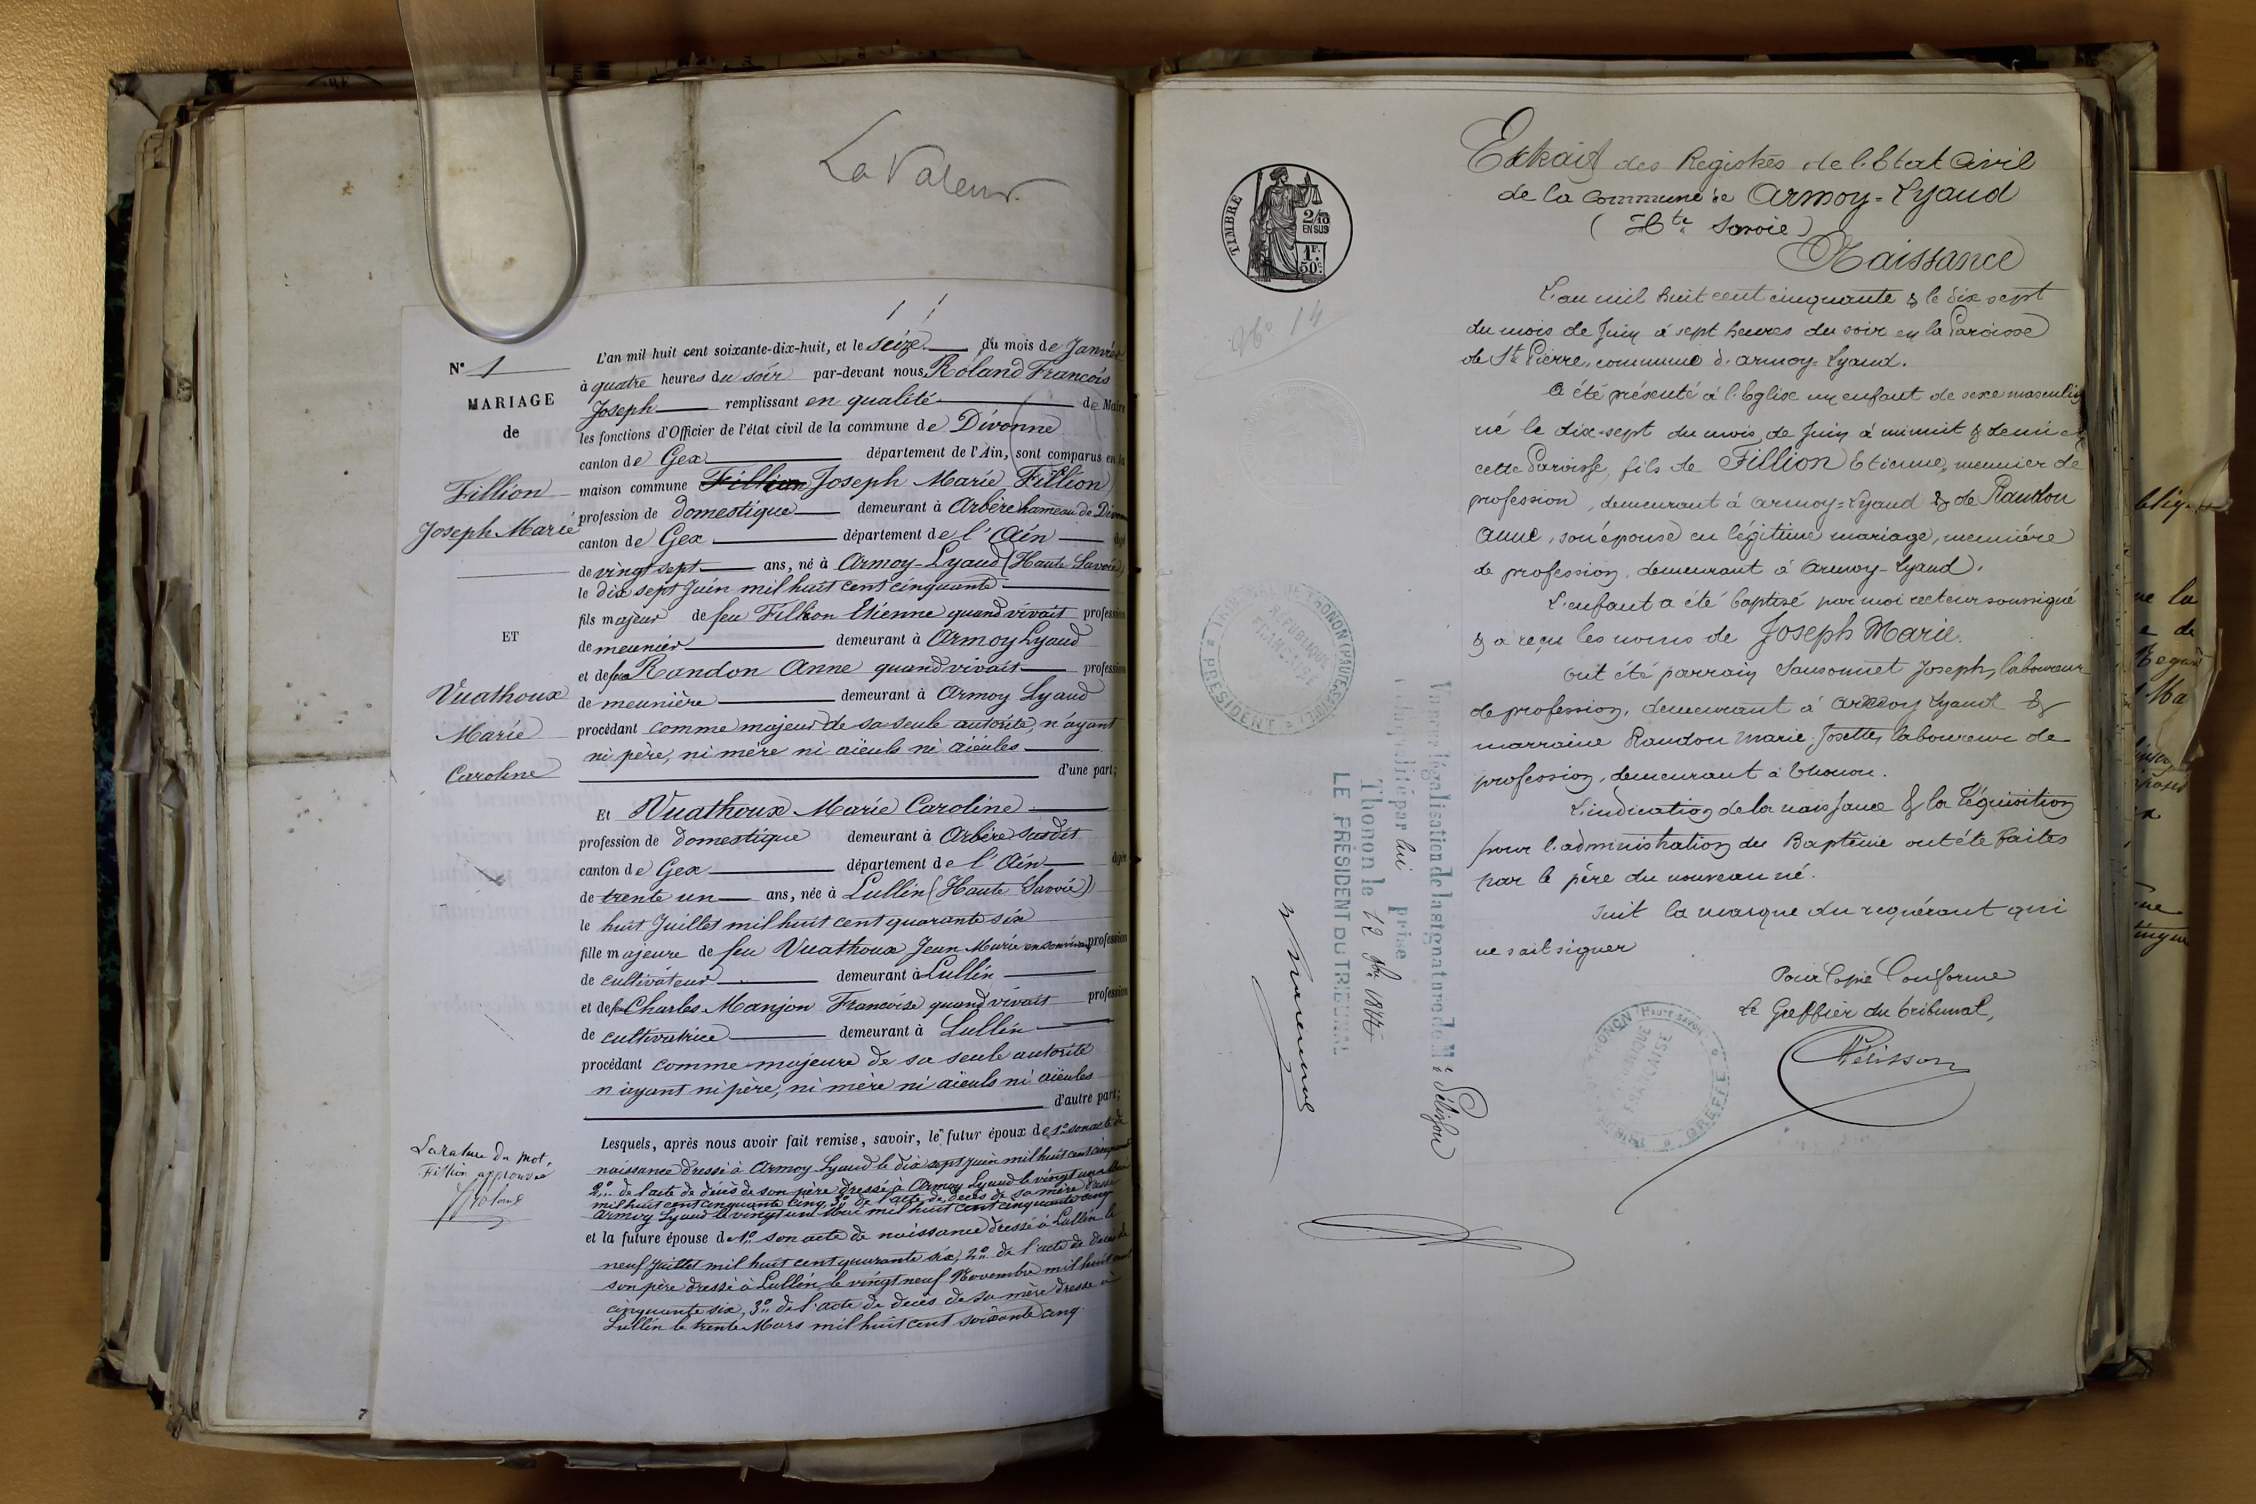 La Valeur
N° 1
MARIAGE
de
Fillion
Joseph Marie
ET
Vuathoux
Marie
Caroline
La rature du mot
Fillion approuvée
JRoland
L'an mil huit cent soixante-dix-huit, et le seize du mois de Janvier
à quatre heures du soir par-devant nous Roland François
Joseph remplissant en qualité de Maire
les fonctions d'Officier de l'état civil de la commune de Divonne
canton de Gex département de l'Ain, sont comparus en la
maison commune Fillion Joseph Marie Fillion
profession de domestique demeurant à Arbère hameau de Divonne
canton de Gex département de l'Ain âgé
de vingt sept ans, né à Armoy-Lyaud (Haute Savoie)
le dix sept Juin mil huit cent cinquante
fils majeur de feu Fillion Etienne quand vivait profession
de meunier demeurant à Armoy Lyaud
et de feu Randon Anne quand vivait profession
de meunière demeurant à Armoy Lyaud
procédant comme majeur de sa seule autorité, n'ayant
ni père, ni mère ni aïeuls ni aïeules
d'une part;
Et Vuathoux Marie Caroline
profession de domestique demeurant à Arbère susdit
canton de Gex département de l'Ain âgée
de trente un ans, née à Lullin (Haute Savoie)
le huit Juillet mil huit cent quarante six
fille majeure de feu Vuathoux Jean Marie en son vivant profession
de cultivateur demeurant à Lullin
et de feu Charles Manjon Françoise quand vivait profession
de cultivatrice demeurant à Lullin
procédant comme majeure de sa seule autorité
n'ayant ni père, ni mère ni aïeuls ni aïeules
d'autre part;
Lesquels, après nous avoir fait remise, savoir, le futur époux de 1° son acte de
naissance dressé à Armoy Lyaud le dix sept juin mil huit cent cinquante
2° de l'acte de décès de son père dressé à Armoy Lyaud le vingt un
mil huit cent cinquante cinq 3° de l'acte de décès de sa mère dressé
Armoy Lyaud le vingt un mil huit cent cinquante cinq
et la future épouse de 1° son acte de naissance dressé à Lullin le
neuf Juillet mil huit cent quarante six, 2° de l'acte de décès de
son père dressé à Lullin le vingt neuf Novembre mil huit cent
cinquante six, 3° de l'acte de décès de sa mère dressé à
Lullin le trente Mars mil huit cent soixante cinq
TIMBRE
2/10
EN SUS
1F.
50c.
No 14
Extrait des Registres de l'Etat Civil
de la Commune de Armoy=Lyaud
(Hte Savoie)
Naissance
L'an mil huit cent cinquante & le dix sept
du mois de Juin à sept heures du soir en la Paroisse
de St Pierre, commune d'armoy=Lyaud.
A été présenté à l'Eglise un enfant de sexe masculin
né le dix-sept du mois de Juin à minuit & demi en
cette Paroisse, fils de Fillion Etienne, meunier de
profession, demeurant à armoy=Lyaud & de Randon
anne, son épouse en légitime mariage, meunière
de profession, demeurant à armoy-Lyaud.
L'enfant a été baptisé par moi recteur soussigné
& a reçu les noms de Joseph Marie.
ont été parrain Sansonnet Joseph, laboureur
de profession, demeurant à armoy Lyaud &
marraine Randon Marie Josette, laboureur de
profession, demeurant à Thonon.
L'indication de la naissance & la réquisition
pour l'administration du Baptême ont été faites
par le père du nouveau né.
Suit la marque du requérant qui
ne sait signer
Pour Copie Conforme
Le Greffier du tribunal,
Pélisson
TRIBUNAL DE THONON (HAUTE-SAVOIE) PRESIDENT
REPUBLIQUE
FRANCAISE
Vu pour légalisation de la signature de M. Pélisson
qualité par lui prise
Thonon le 12 Xbre 1877
LE PRÉSIDENT DU TRIBUNAL
THONON (HAUTE SAVOIE) GREFFE
FRANÇAISE